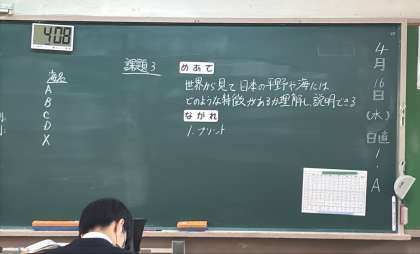 4:08
課題3
めあて
世界から見て日本の平野や海には
どのような特徴があるか理解し、説明できる
ながれ
1. プリント
A
B
C
D
X
4月16日(水)
日直
A